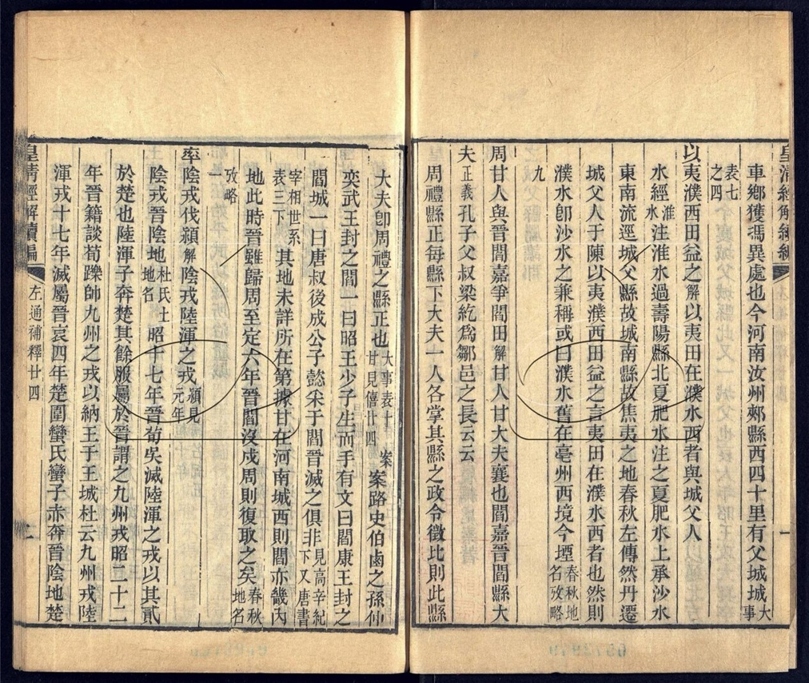 皇清經解續編
車鄉獲馮異處也今河南汝州郟縣西四十里有父城城大事
表七之四
以夷濮西田益之解以夷田在濮水西者與城父人
水經淮水注淮水過壽陽縣北夏肥水注之夏肥水上承沙水
東南流逕城父縣故城南縣故焦夷之地春秋左傳然丹遷
城父人于陳以夷濮西田益之言夷田在濮水西者也然則
濮水卽沙水之兼稱或曰濮水舊在亳州西境今堙春秋地名攷略
九
周甘人與晉閻嘉爭閻田解甘人甘大夫襄也閻嘉晉閻縣大
夫正義孔子父叔梁紇爲鄒邑之長云云
周禮縣正每縣下大夫一人各掌其縣之政令徵比則此縣
一
大夫卽周禮之縣正也大事表十甘見僖廿四案案路史伯鹵之孫仲
奕武王封之閻一曰昭王少子生而手有文曰閻康王封之
閻城一曰唐叔後成公子懿采于閻晉滅之俱非見高辛紀下又唐書
宰相世系表三下其地未詳所在第據甘在河南城西則閻亦畿內
地此時晉雖歸周至定六年晉閻沒成周則復取之矣春秋地名
攷略一
率陰戎伐潁解陰戎陸渾之戎潁見元年
陰戎晉陰地杜氏土地名昭十七年晉荀吳滅陸渾之戎以其貳
於楚也陸渾子奔楚其餘服屬於晉謂之九州戎昭二十二
年晉籍談荀躒帥九州之戎以納王于王城杜云九州戎陸
渾戎十七年滅屬晉哀四年楚圍蠻氏蠻子赤奔晉陰地楚
皇清經解續編
左通補釋廿四
二